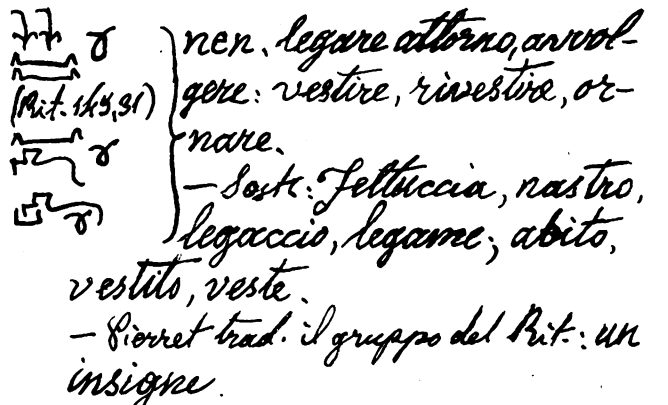 nen. legare attorno, avvol-
gere: vestire, rivestire, or-
(Rit. 145,31)
nare.
— Sost: Fettuccia, nastro,
legaccio, legame; abito,
vestito, veste.
— Pierret trad. il gruppo del Rit.: un
insigne.